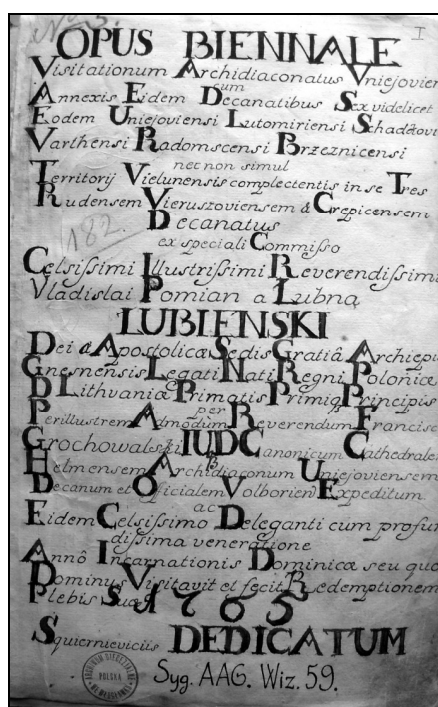 No 3.
I
OPUS BIENNALE
Visitationum Archidiaconatus Vniejovien
cum
Annexis Eidem Decanatibus Sex videlicet
Eodem Uniejoviensi Lutomiriensi Schadĕkovi
Varthensi Radomscensi Brzeznicensi
nec non simul
Territorij Vielunensis complectentis in se Tres
Rudensem Vieruszoviensem & Crepicensem
Decanatus
182.
ex speciali Commisso
Celsissimi Illustrissimi Reverendissimi
Vladislai Pomian a Lubna
LUBIENSKI
Dei & Apostolicæ Sedis Gratiâ Archiepis
Gnesnensis Legati Nati Regni Poloniæ
D Lithvaniæ Primatis Primiq Principis
per
Perillustrem Admodum Reverendum Francisc
Grochowalski IUD Canonicum Cathedrale
Helmensem Archidiaconum Uniejoviensem
Decanum et Officialem Volborien Expeditum.
ac
Eidem Celsissimo Deleganti cum profun
dissima veneratione
Annô Incarnationis Dominicæ seu quo
Dominus Visitavit et fecit Redemptionem
Plebis Suæ 1765
Squierneviciis DEDICATUM
POLSKA
Syg. AAG. Wiz. 59.